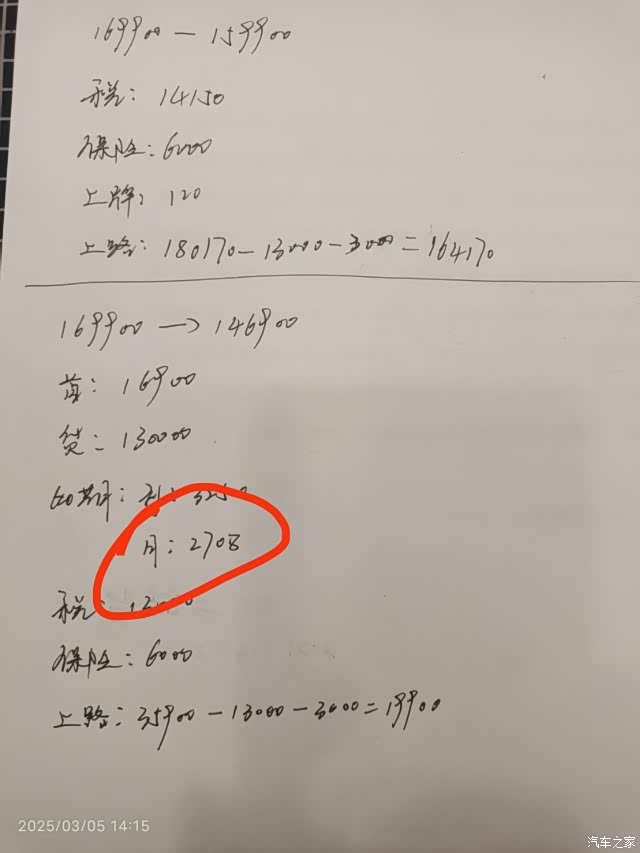 169900 — 159900
税: 14150
保险: 6000
上牌: 120
上路: 180170 - 13000 - 3000 = 164170
169900 → 146900
首: 16900
贷: 130000
60期: 利: 3250
月: 2708
税: 13000
保险: 6000
上路: 35900 - 13000 - 3000 = 19900
2025/03/05 14:15
汽车之家